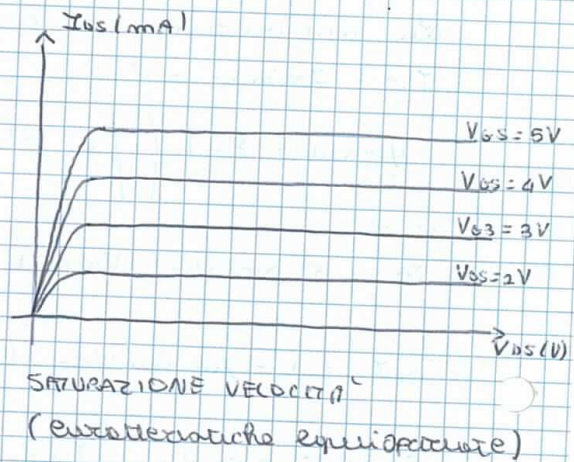 IDS (mA)
VGS = 5V
VGS = 4V
VG3 = 3V
VDS = 2V
VDS (V)
SATURAZIONE VELOCITA'
(caratteristiche equispaziate)